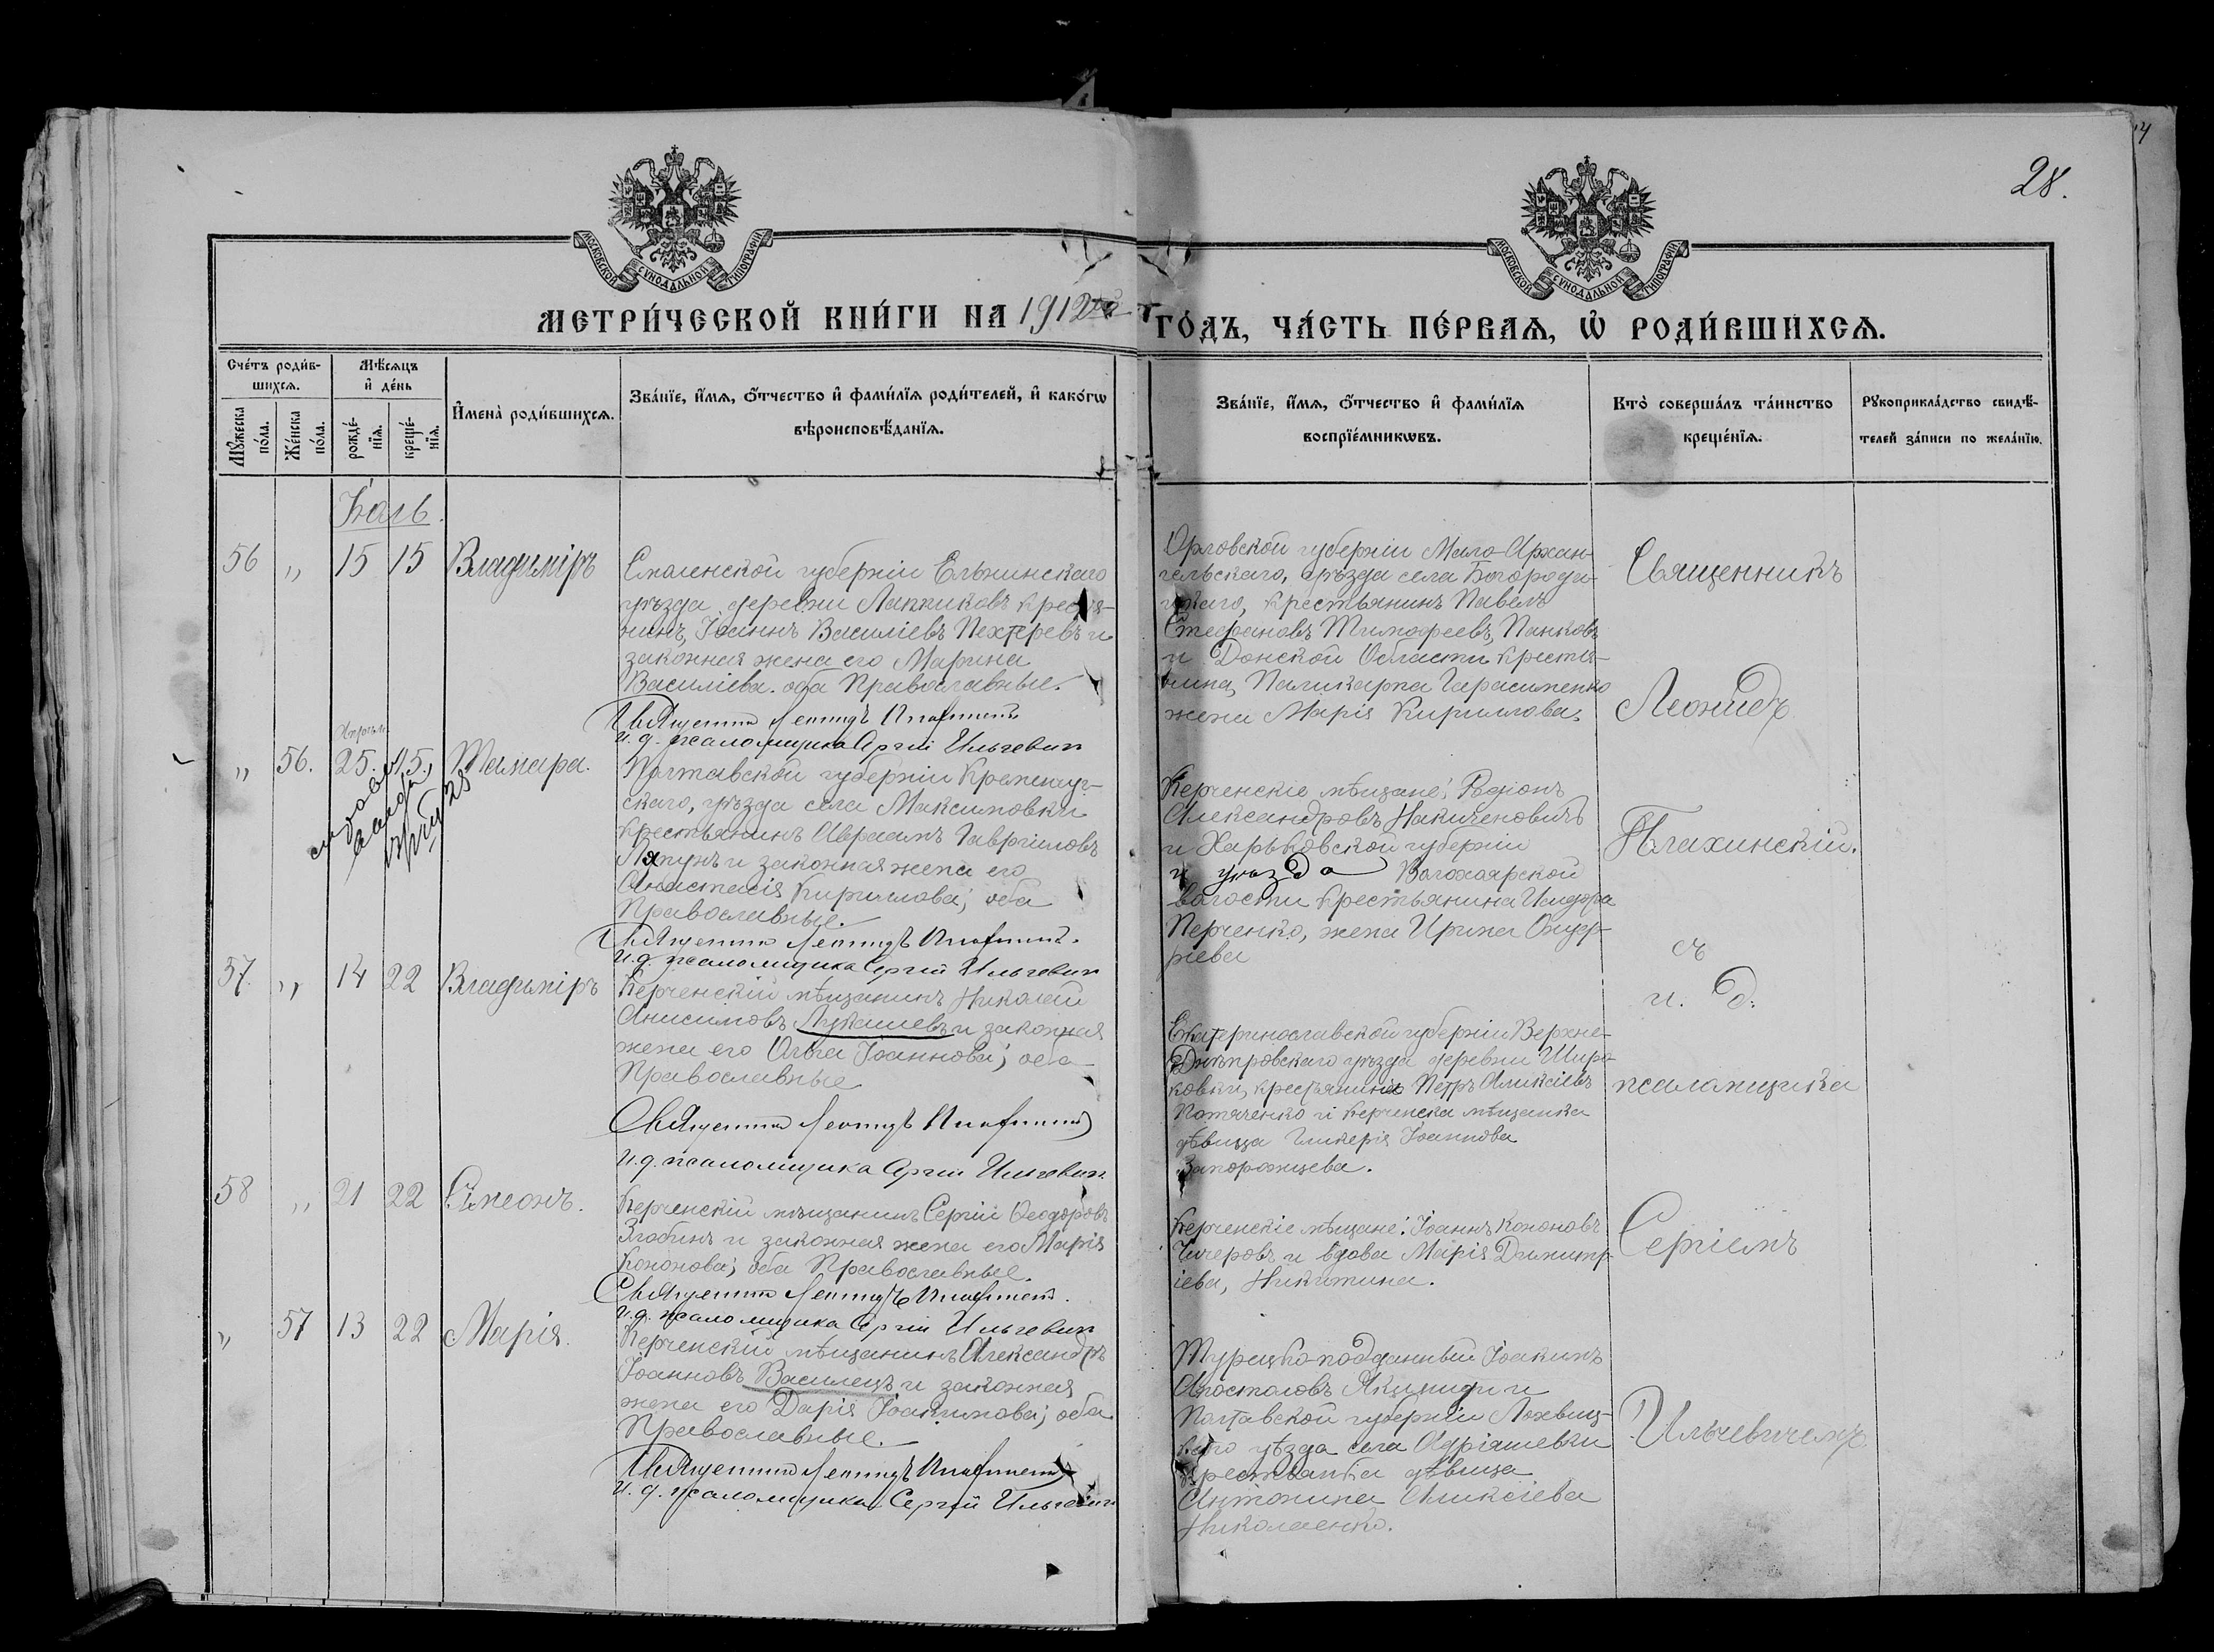 28.
МОСКОВСКОЙ СѴНОДАЛЬНОЙ ТИПОГРАФІИ
МОСКОВСКОЙ СѴНОДАЛЬНОЙ ТИПОГРАФІИ
МЕТРИ́ЧЕСКОЙ КНИ́ГИ НА 1912й
ГО́ДЪ, ЧА́СТЬ ПЕ́РВАѦ, Ѡ҆ РОДИ́ВШИХСѦ.
Сче́тъ роди́в-
шихсѧ.
Мꙋжеска по́ла.
Же́нска по́ла.
Мѣ́сѧцъ
и҆ де́нь
рожде́-
нїѧ.
креще́-
нїѧ.
И҆мена̀ роди́вшихсѧ.
Зва́нїе, и҆́мѧ, ѻ҆́тчество и҆ фами́лїѧ роди́телей, и҆ како́гѡ
вѣроисповѣ́данїѧ.
Зва́нїе, и҆́мѧ, ѻ҆́тчество и҆ фами́лїѧ
воспрїе́мникѡвъ.
Кто̀ соверша́лъ та́инство
креще́нїѧ.
Рꙋкоприкла́дство свидѣ́-
телей за́писи по жела́нїю.
Іюль.
56 " 15 15 Владиміръ
Смоленской губерніи Ельнинскаго
уѣзда, деревни Лапкиковъ крестья-
нинъ, Іоаннъ Василіевъ Пехтеревъ и
законная жена его Марина
Василіева. оба Православные.
Священникъ Леонидъ
и. д. псаломщика Сергій Ильчевич
Орловской губерніи Мало-Архан-
гельскаго, уѣзда села Богороди-
цкаго, крестьянинъ Павелъ
Стефановъ Тимофеевъ, Панковъ
и Донской Области крестья-
нина, Паликарпа Герасименко
жена Марія Кириллова.
" 56. 25. 15. Тамара.
Полтавской губерніи Кременчуг-
скаго, уѣзда села Максимовки
крестьянинъ Авраамъ Гавріиловъ
Ляпунъ и законная жена его
Анастасія Кириллова; оба
Православные.
Священникъ Леонидъ
и. д. псаломщика Сергій Ильчевич
Керченскіе мѣщане: Родіонъ
Александровъ Накиченовичъ
и Харьковской губерніи
и уѣзда Волохоярской
волости крестьянина Исидора
Перченко, жена Ирина Ондер-
ріева
57. " 14 22 Владиміръ
Керченскій мѣщанинъ Николай
Анисимовъ Лукашевъ и законная
жена его Ольга Іоаннова; оба
Православные
Священникъ Леонидъ
и. д. псаломщика Сергій Ильчевич
Екатеринославской губерніи Верхне-
Днѣпровскаго уѣзда деревни Широ-
ковки, крестьянинъ Петръ Алексіевъ
Потяченко и Керченска мѣщанка
дѣвица Гликерія Іоаннова
Запорожцева.
58 " 21 22 Симеонъ.
Керченскій мѣщанинъ Сергій Ѳеодоровъ
Злобинъ и законная жена его Марія
Кононова; оба Православные.
Священникъ Леонидъ
и. д. псаломщика Сергій Ильчевич
Керченскіе мѣщане: Іоаннъ Кононовъ
Чичеровъ и вдова Марія Димитр-
іева, Никитина.
" 57 13 22 Марія.
Керченскій мѣщанинъ Александръ
Іоанновъ Василецъ и законная
жена его Дарія Іоакимова; оба
Православные.
Священникъ Леонидъ
и. д. псаломщика Сергій Ильчевич
Турецко-подданный Іоакимъ
Апостоловъ и
Полтавской губерніи Лохвиц-
каго уѣзда села Адріяшевки
крестьянка дѣвица
Антонина Алексіева
Николаенко.
Священникъ
Леонидъ
Плахинскій.
съ
и. д.
псаломщика
Сергіемъ
Ильчевичемъ